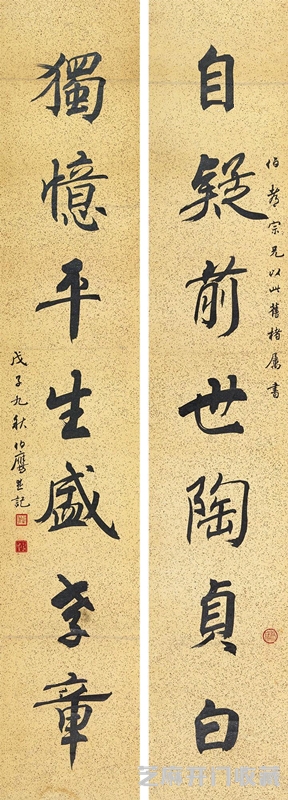 自疑前世陶貞白
伯孝宗兄以此舊楮属書
獨憶平生盛孝章
戊子九秋伯鹰並記